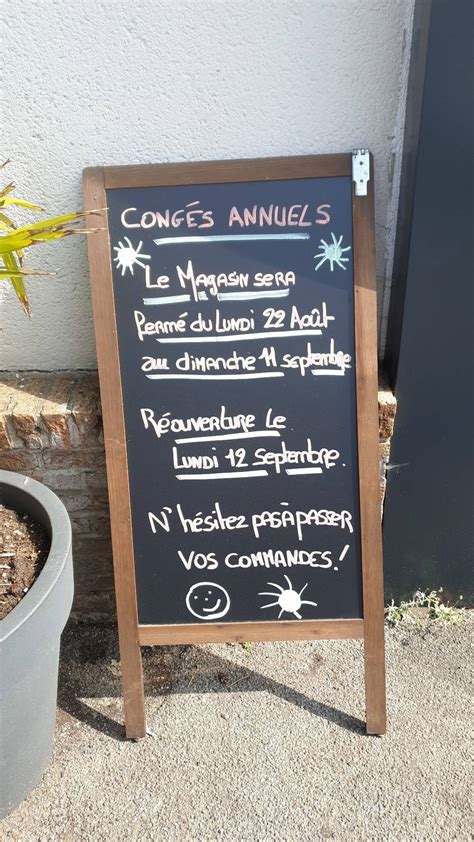 CONGÉS ANNUELS
LE MAGASIN SERA
FERMÉ DU LUNDI 22 AOÛT
AU DIMANCHE 11 SEPTEMBRE
RÉOUVERTURE LE
LUNDI 12 SEPTEMBRE.
N'HÉSITEZ PAS À PASSER
VOS COMMANDES!